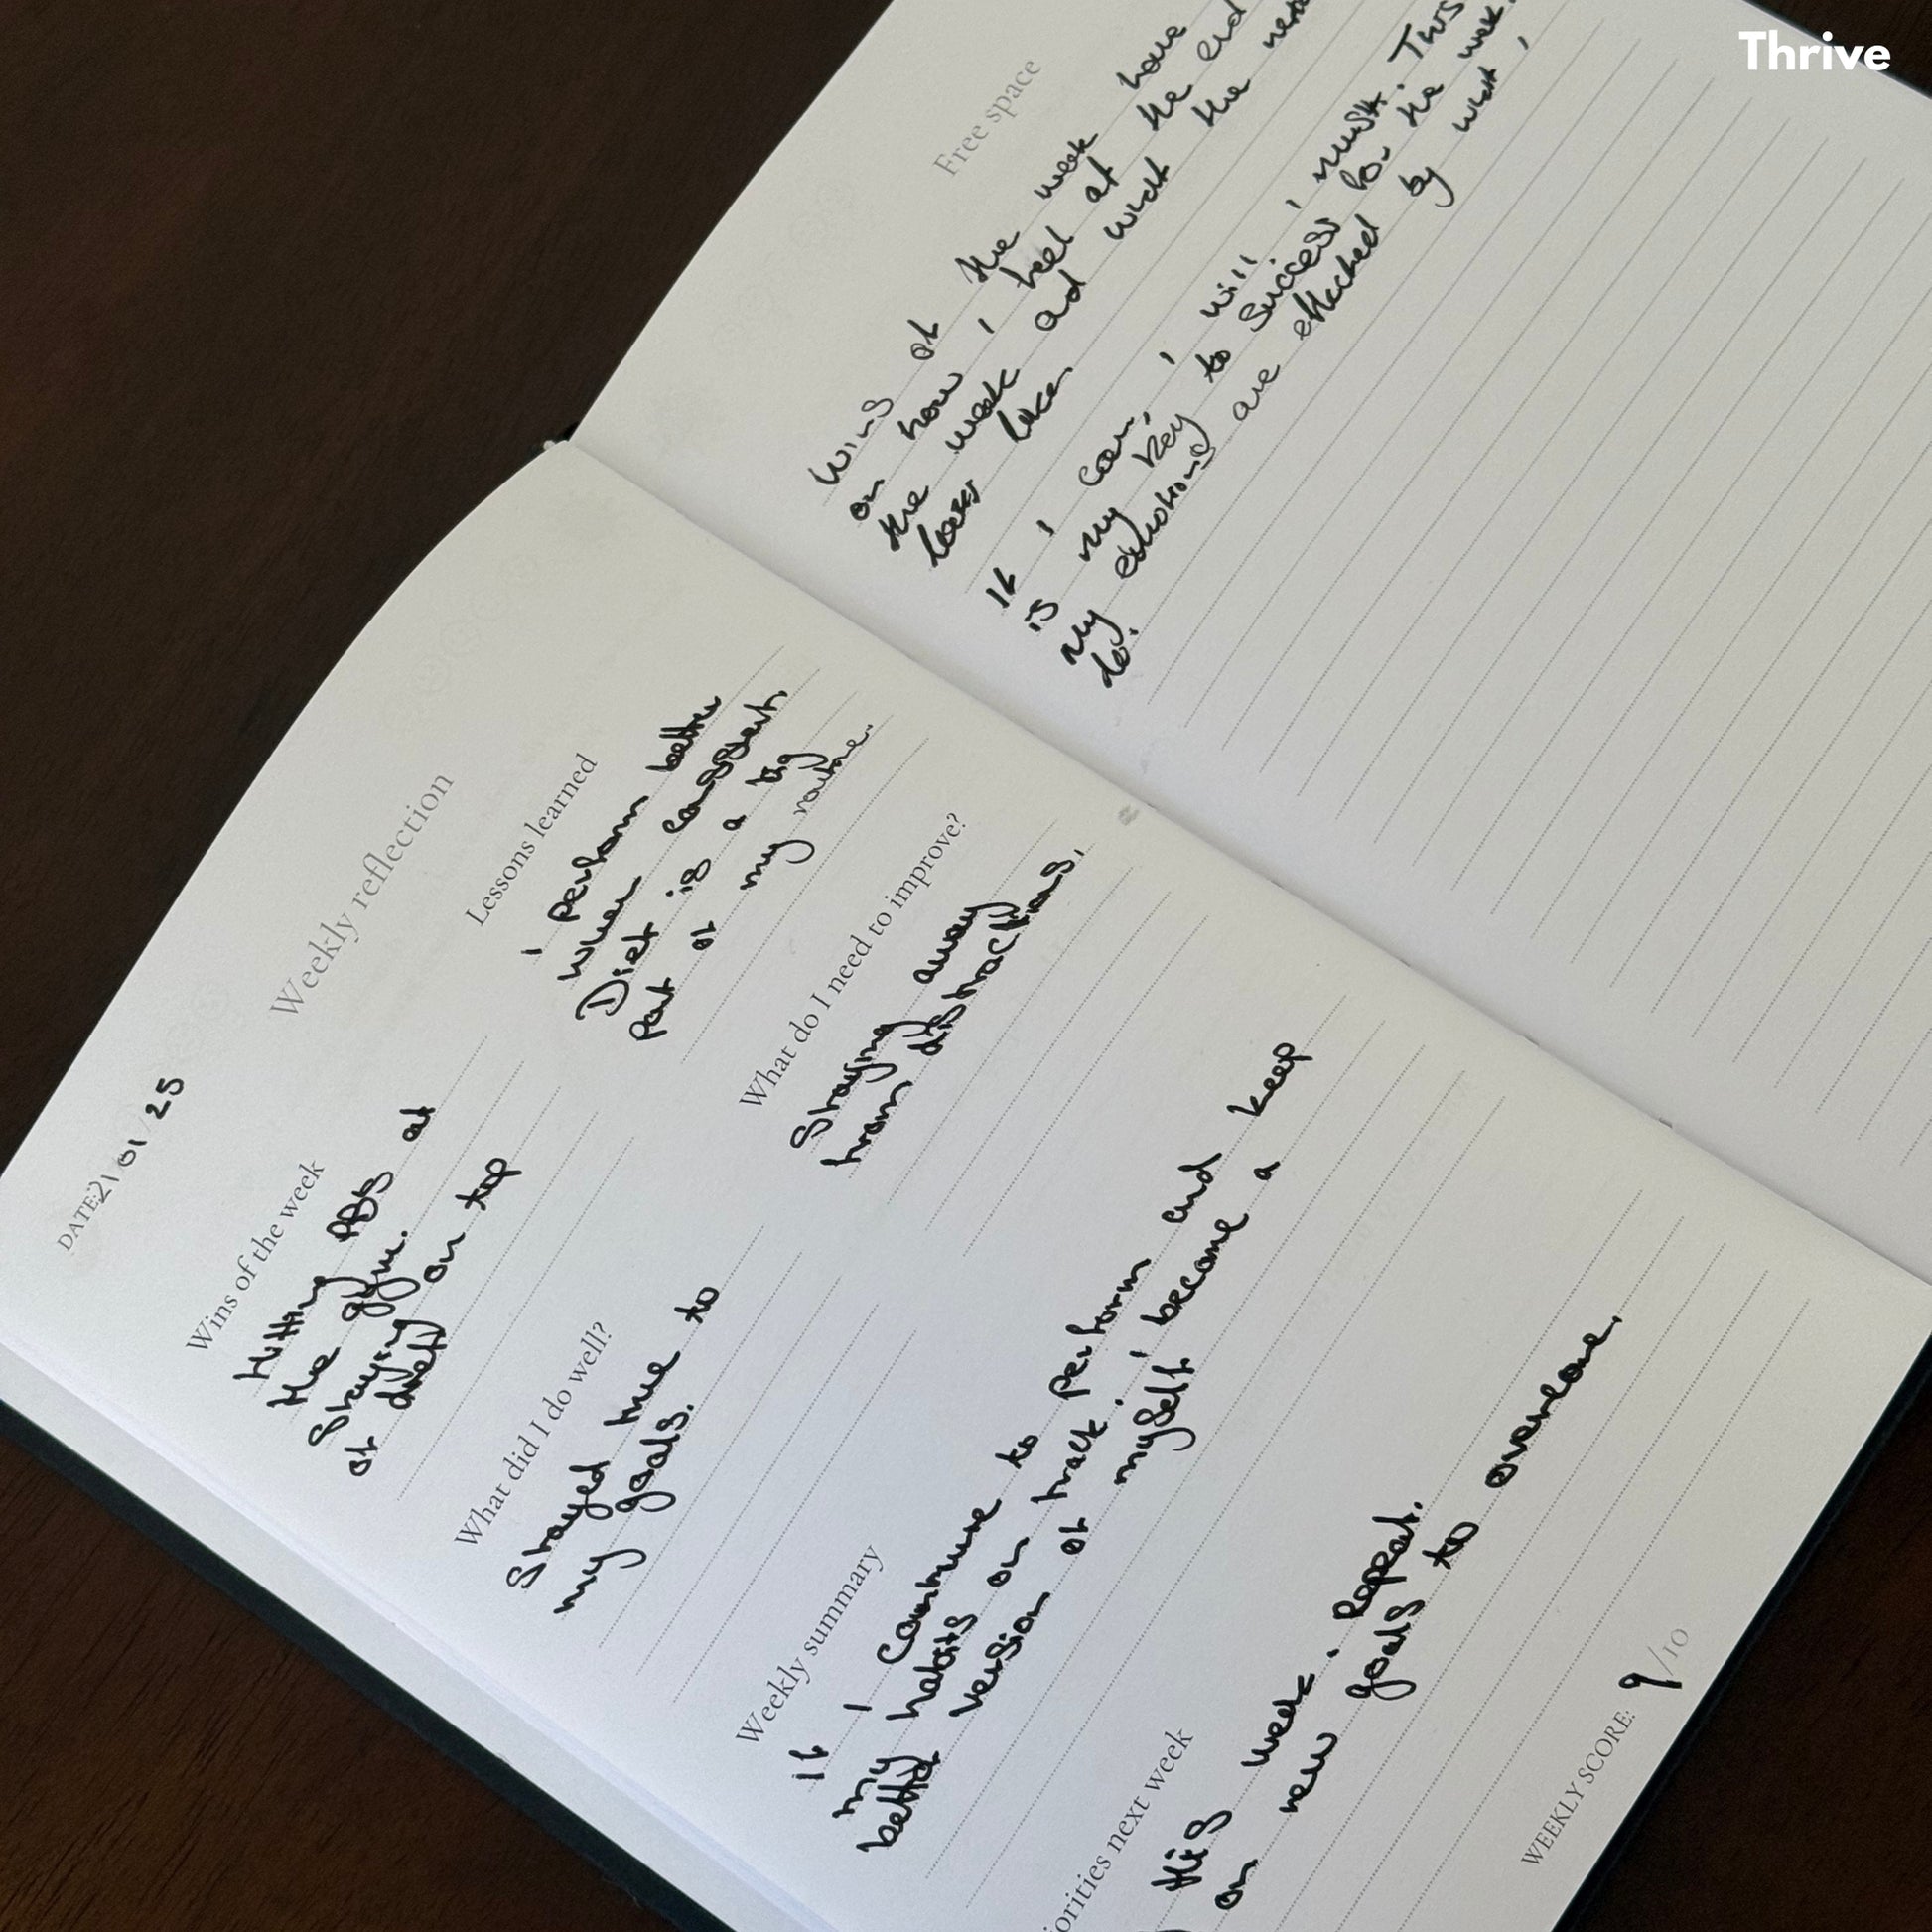 Thrive
DATE: 21/01/25
Weekly reflection
Wins of the week
Hitting PBs at
the gym.
Staying on top
of diet
Lessons learned
I perform better
when consistent.
Diet is a big
part of my routine.
What did I do well?
Stayed true to
my goals.
What do I need to improve?
Staying away
from distractions.
Weekly summary
If I continue to perform and keep
my habits on track, I become a
better version of myself
orities next week
this week. Repeat.
on new goals to overcome.
WEEKLY SCORE: 9/10
Free space
Wins of the week have
on how I feel at the end
the week and what the
looks like.
If I can, I will, I must. This
is my key to success for the week.
My emotions are effected by what I
do.